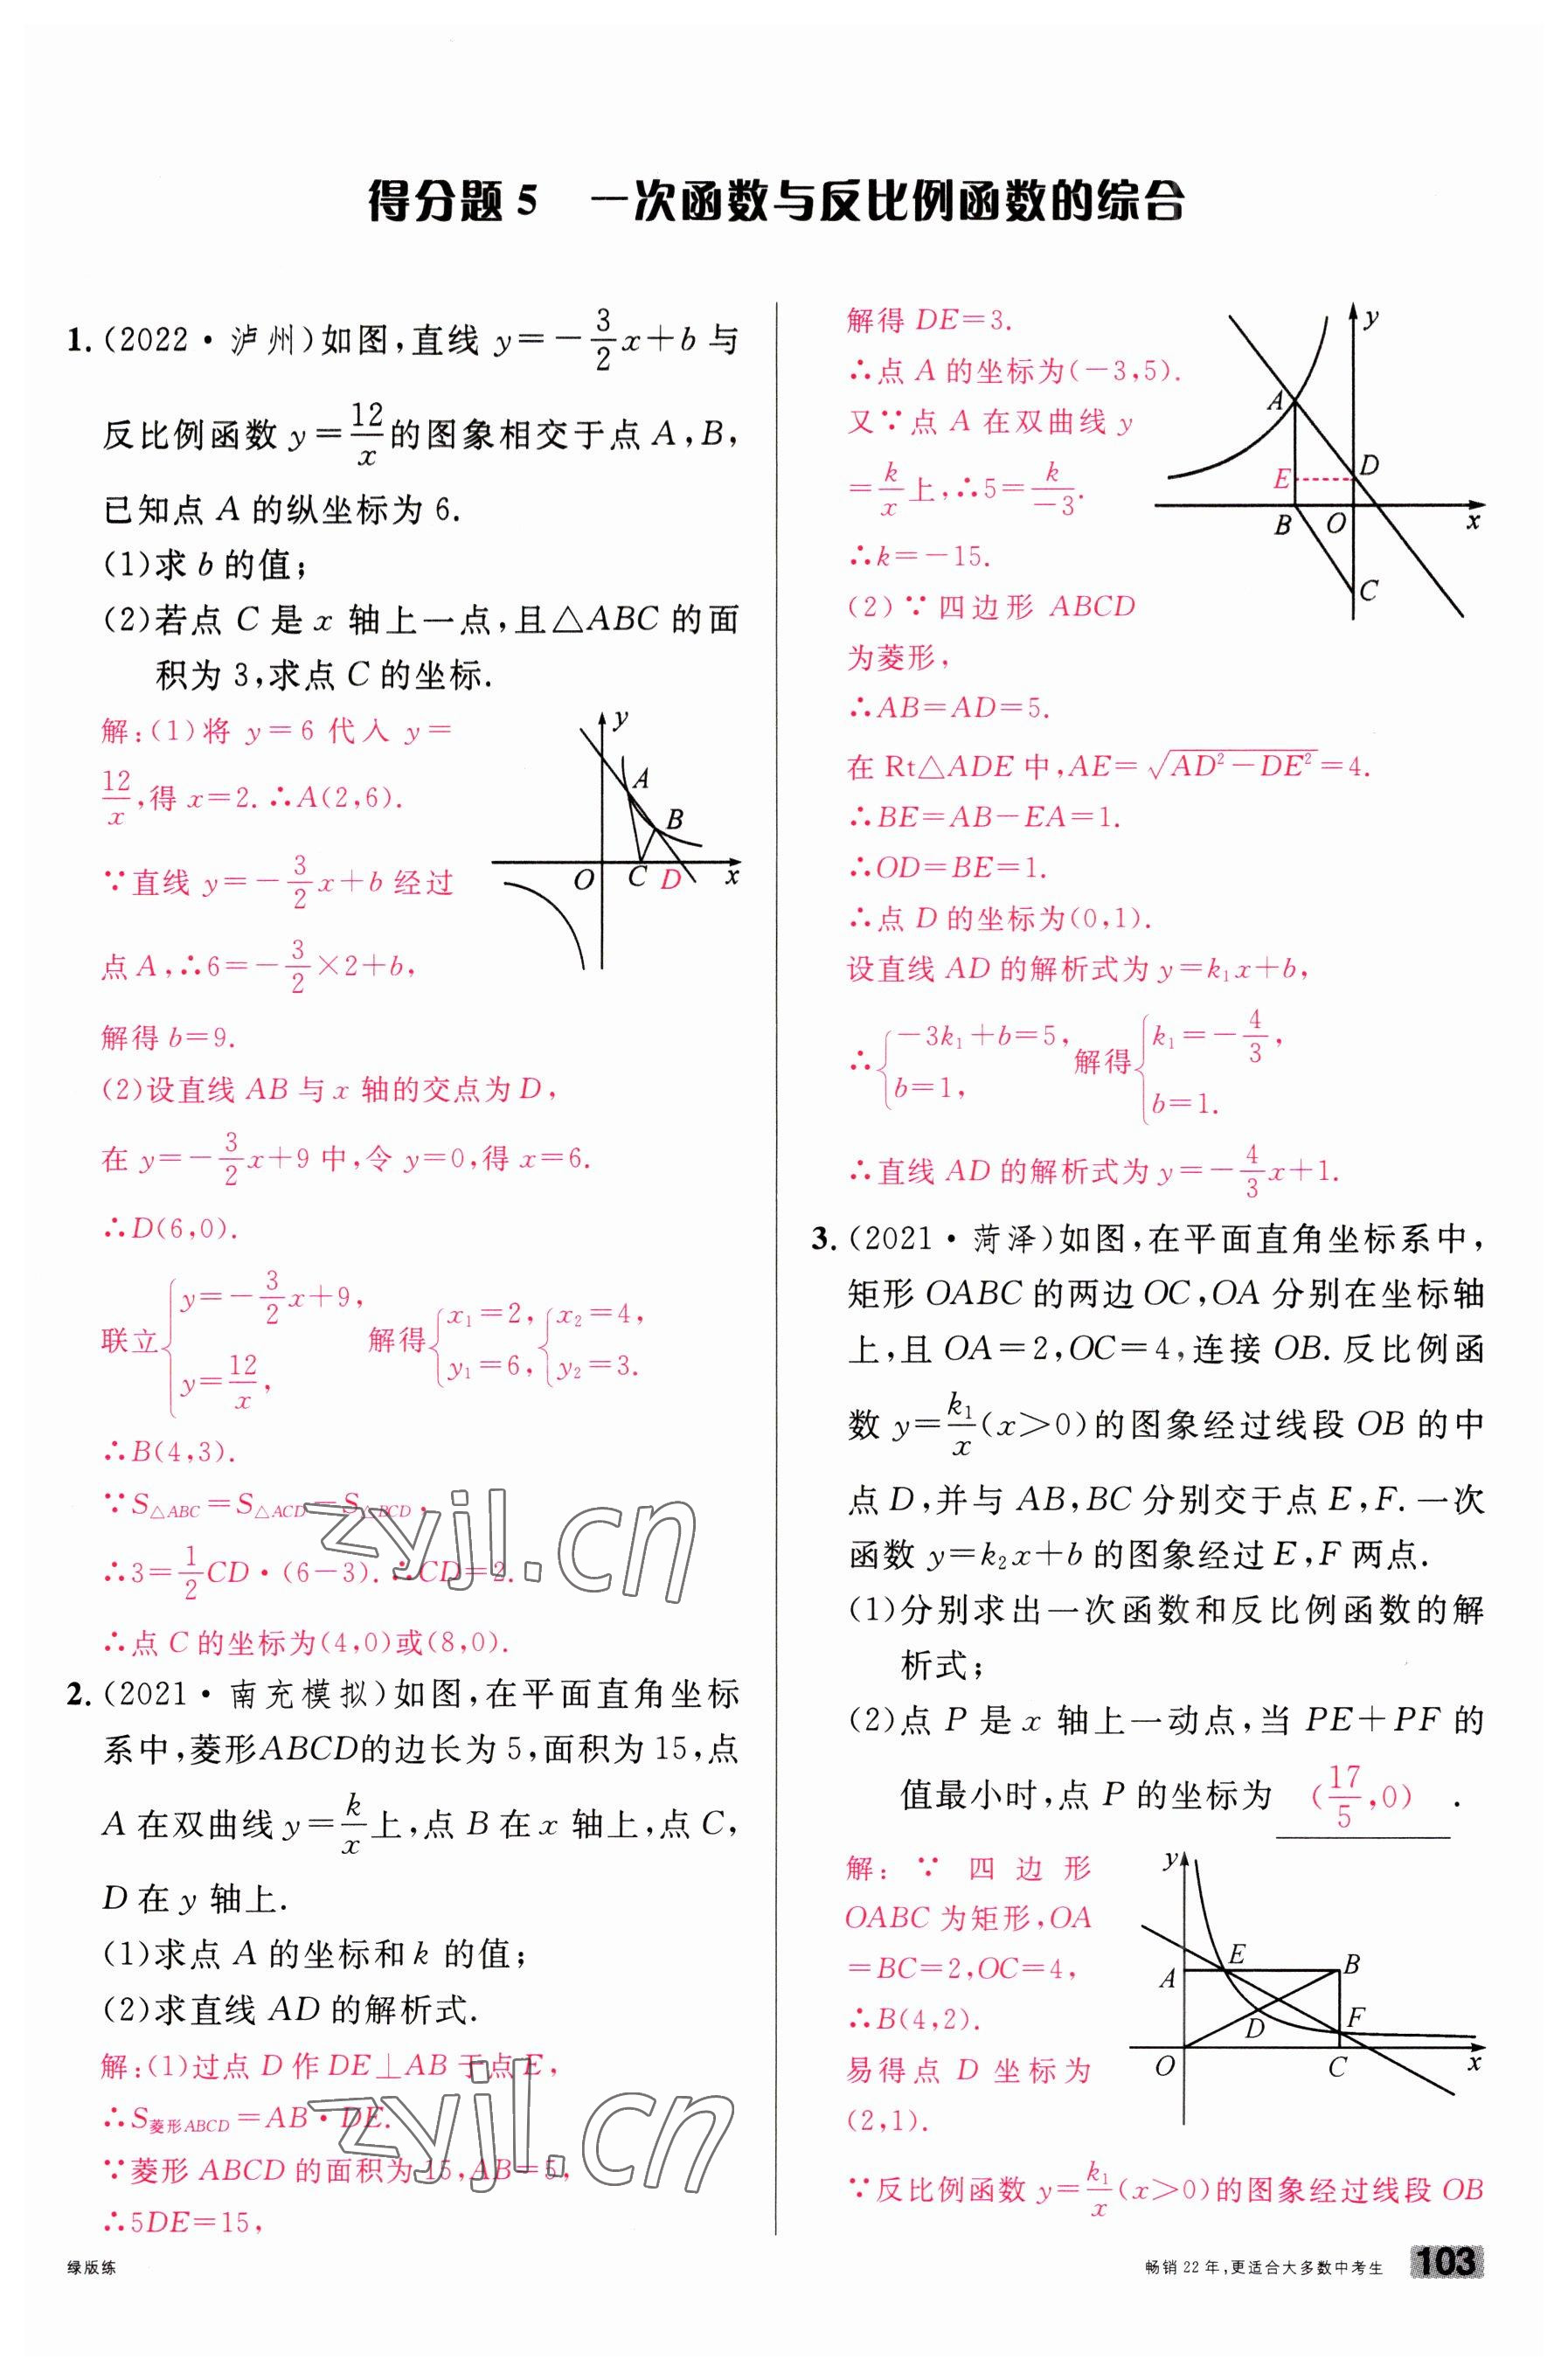 得分题 5　一次函数与反比例函数的综合
1. (2022·泸州)如图,直线 y=-3/2x+b 与
反比例函数 y=12/x的图象相交于点 A,B,
已知点 A 的纵坐标为 6.
(1)求 b 的值;
(2)若点 C 是 x 轴上一点,且△ABC 的面
积为 3,求点 C 的坐标.
解:(1)将 y=6 代入 y=
12/x,得 x=2. ∴A(2,6).
∵直线 y=-3/2x+b 经过
点 A,∴6=-3/2×2+b,
解得 b=9.
(2)设直线 AB 与 x 轴的交点为 D,
在 y=-3/2x+9 中,令 y=0,得 x=6.
∴D(6,0).
联立{y=-3/2x+9, y=12/x, 解得{x₁=2, y₁=6, {x₂=4, y₂=3.
∴B(4,3).
∵S△ABC=S△ACD-S△BCD,
∴3=1/2CD·(6-3). ∴CD=2.
∴点 C 的坐标为(4,0)或(8,0).
y
A
B
O
C
D
x
2. (2021·南充模拟)如图,在平面直角坐标
系中,菱形ABCD的边长为 5,面积为 15,点
A 在双曲线 y=k/x上,点 B 在 x 轴上,点 C,
D 在 y 轴上.
(1)求点 A 的坐标和 k 的值;
(2)求直线 AD 的解析式.
解:(1)过点 D 作 DE⊥AB 于点 E,
∴S菱形ABCD=AB·DE.
∵菱形 ABCD 的面积为 15,AB=5,
∴5DE=15,
解得 DE=3.
∴点 A 的坐标为(-3,5).
又∵点 A 在双曲线 y
=k/x上,∴5=k/-3.
∴k=-15.
(2)∵四边形 ABCD
为菱形,
∴AB=AD=5.
在 Rt△ADE 中,AE=√(AD²-DE²)=4.
∴BE=AB-EA=1.
∴OD=BE=1.
∴点 D 的坐标为(0,1).
设直线 AD 的解析式为 y=k₁x+b,
∴{-3k₁+b=5, b=1, 解得{k₁=-4/3, b=1.
∴直线 AD 的解析式为 y=-4/3x+1.
y
A
D
E
B
O
x
C
3. (2021·菏泽)如图,在平面直角坐标系中,
矩形 OABC 的两边 OC,OA 分别在坐标轴
上,且 OA=2,OC=4,连接 OB. 反比例函
数 y=k₁/x(x>0)的图象经过线段 OB 的中
点 D,并与 AB,BC 分别交于点 E,F. 一次
函数 y=k₂x+b 的图象经过 E,F 两点.
(1)分别求出一次函数和反比例函数的解
析式;
(2)点 P 是 x 轴上一动点,当 PE+PF 的
值最小时,点 P 的坐标为 (17/5,0) .
解:∵四边形
OABC 为矩形,OA
=BC=2,OC=4,
∴B(4,2).
易得点 D 坐标为
(2,1).
∵反比例函数 y=k₁/x(x>0)的图象经过线段 OB
y
E
A
B
D
F
O
C
x
zyjl.cn
zyjl.cn
绿版练
畅销 22 年,更适合大多数中考生 103